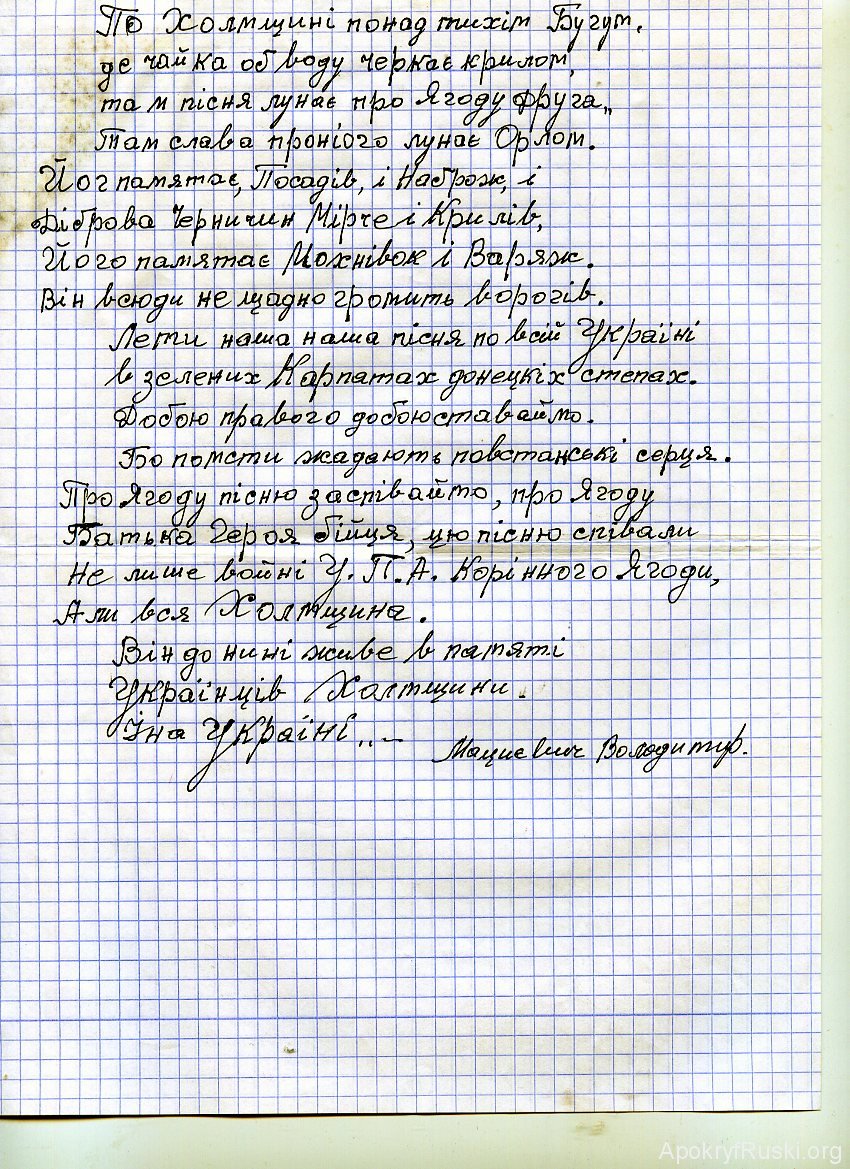 По Холмщині понад тихім Бугум,
де чайка об воду черкає крилом,
там пісня лунає про Ягоду друга,,
Там слава пронього лунає Орлом.
Йог памятає, Посадів, і Наброж, і
Діброва Черничин Мірче і Крилів,
Його памятає Мохнівок і Варяж.
Він всюди не щадно громить ворогів.
Лети наша наша пісня по всій Україні
в зелених Карпатах донецкіх степах.
Добою правого добоюставаймо.
Бо помсти жадають повстанські серця.
Про Ягоду пісню заспіваймо, про Ягоду
Батька Героя бійця, цю пісню співали
Не лише войні У.П.А. Корінного Ягоди,
Али вся Холмщина.
Він до нині живе в памяті
Українців Халмщини.
Їна Україні,,..
Мациєвич Володимир.
ApokryfRuski.org